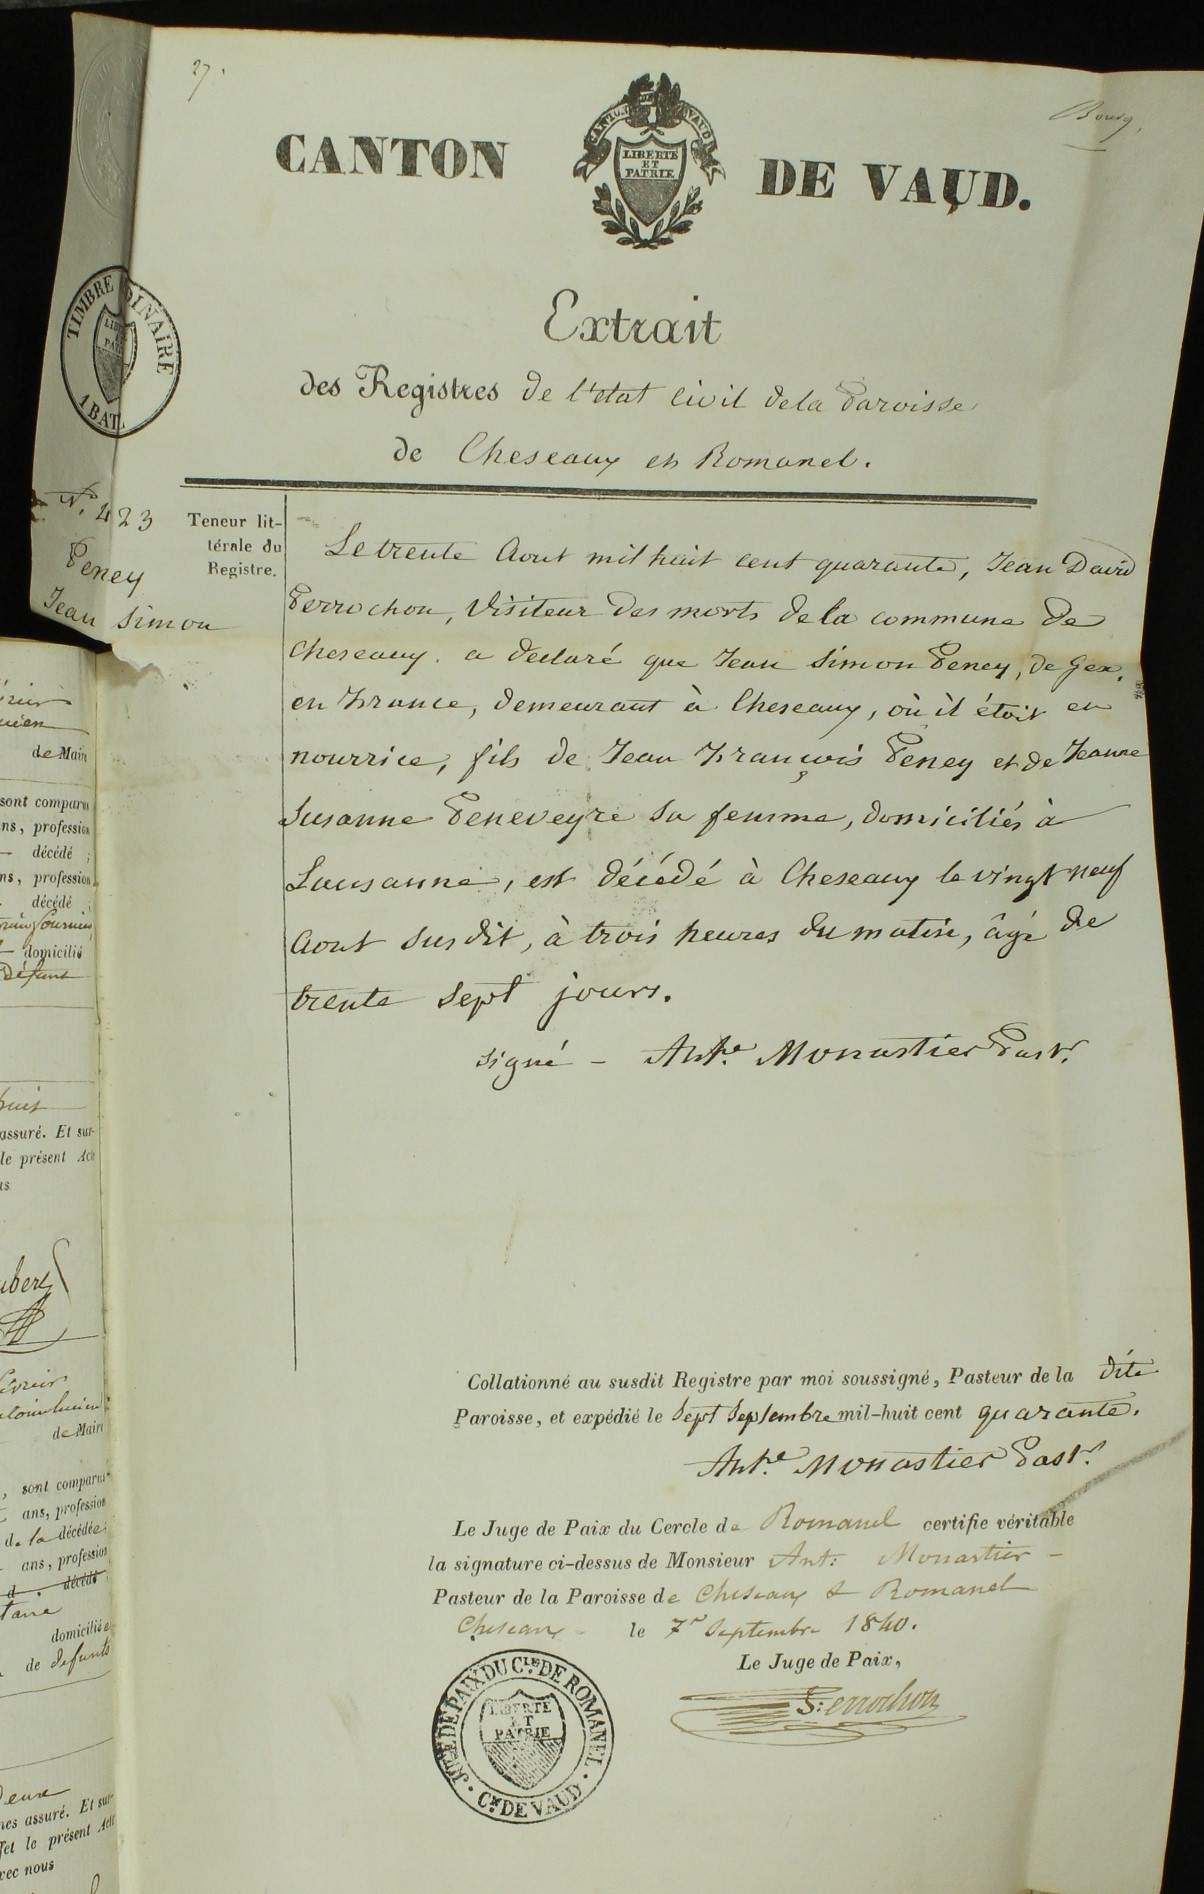 27.
Bourg,
CANTON DE VAUD
LIBERTÉ
ET
PATRIE
CANTON DE VAUD.
TIMBRE ORDINAIRE
1 BAT.
Extrait
des Registres de l'etat civil de la Paroisse
de Cheseaux et Romanel.
N.° 423
Peney
Jean Simon
Teneur lit-
térale du
Registre.
Le trente Aout mil huit cent quarante, Jean David
Perrochon, Visiteur des morts de la commune de
Cheseaux. a declaré que Jean Simon Peney, de Gex,
en France, demeurant à Cheseaux, où il étoit en
nourrice, fils de Jean François Peney et de Jeanne
Susanne Peneveyre sa femme, domiciliés à
Lausanne, est décédé à Cheseaux le vingt neuf
Aout susdit, à trois heures du matin, âgé de
trente sept jours.
signé - Ant.e Monastier Past.r
Collationné au susdit Registre par moi soussigné, Pasteur de la dite
Paroisse, et expédié le Sept Septembre mil-huit cent quarante.
Ant.e Monastier Past.r
Le Juge de Paix du Cercle de Romanel certifie véritable
la signature ci-dessus de Monsieur Ant: Monastier -
Pasteur de la Paroisse de Cheseaux & Romanel
Cheseaux - le 7r Septembre 1840.
Le Juge de Paix,
S: Perrochon
JUGE DE PAIX DU C.LE DE ROMANEL.
LIBERTÉ
ET
PATRIE
C.N DE VAUD
de Maire
sont comparus
ans, profession
décédé ;
ans, profession
décédé ;
domicilié
défunt
huit
assuré. Et sur-
le présent Acte
de Maire
, sont comparus
ans, profession
de la décédée;
ans, profession
d . décédé
domiciliée
de defunts
deux
assuré. Et sur-
le présent Acte
avec nous